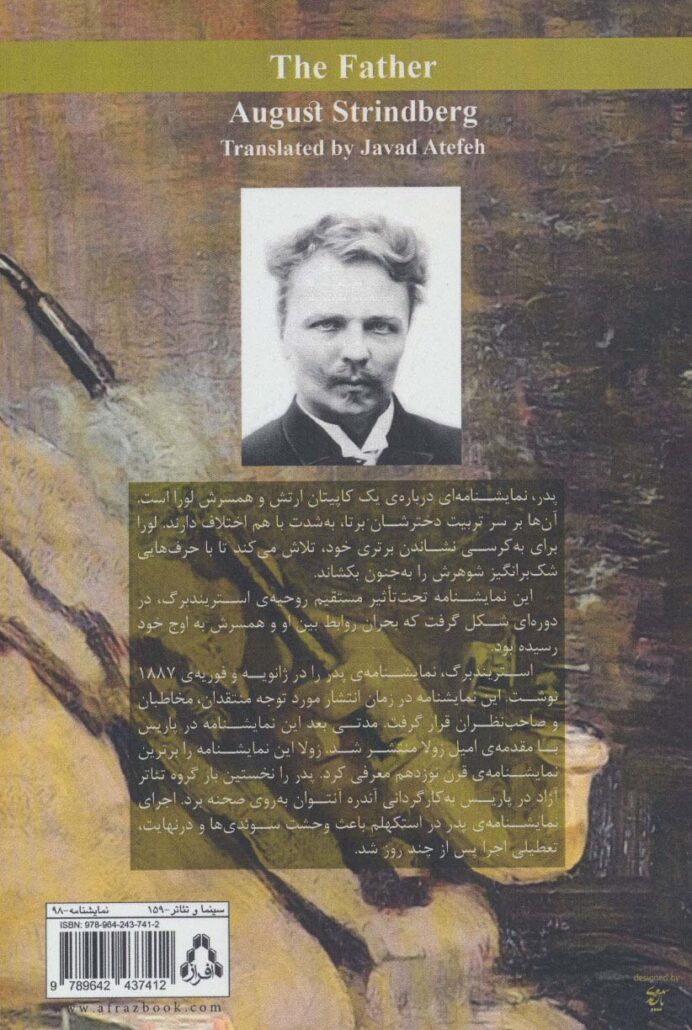 The Father
August Strindberg
Translated by Javad Atefeh
پدر، نمایشنامه‌ای درباره‌ی یک کاپیتان ارتش و همسرش لورا است.
آن‌ها بر سر تربیت دخترشان برتا، به‌شدت با هم اختلاف دارند. لورا
برای به‌کرسی نشاندن برتری خود، تلاش می‌کند تا با حرف‌هایی
شک‌برانگیز شوهرش را به‌جنون بکشاند.
این نمایشنامه تحت‌تأثیر مستقیم روحیه‌ی استریندبرگ، در
دوره‌ای شکل گرفت که بحران روابط بین او و همسرش به اوج خود
رسیده بود.
استریندبرگ، نمایشنامه‌ی پدر را در ژانویه و فوریه‌ی ۱۸۸۷
نوشت. این نمایشنامه در زمان انتشار مورد توجه منتقدان، مخاطبان
و صاحب‌نظران قرار گرفت. مدتی بعد این نمایشنامه در پاریس
با مقدمه‌ی امیل زولا منتشر شد. زولا این نمایشنامه را برترین
نمایشنامه‌ی قرن نوزدهم معرفی کرد. پدر را نخستین بار گروه تئاتر
آزاد در پاریس به‌کارگردانی آندره آنتوان به‌روی صحنه برد. اجرای
نمایشنامه‌ی پدر در استکهلم باعث وحشت سوئدی‌ها و درنهایت،
تعطیلی اجرا پس از چند روز شد.
سینما و تئاتر-۱۵۹ نمایشنامه-۹۸
ISBN: 978-964-243-741-2
افراز
9 789642 437412
www.afrazbook.com
designed by